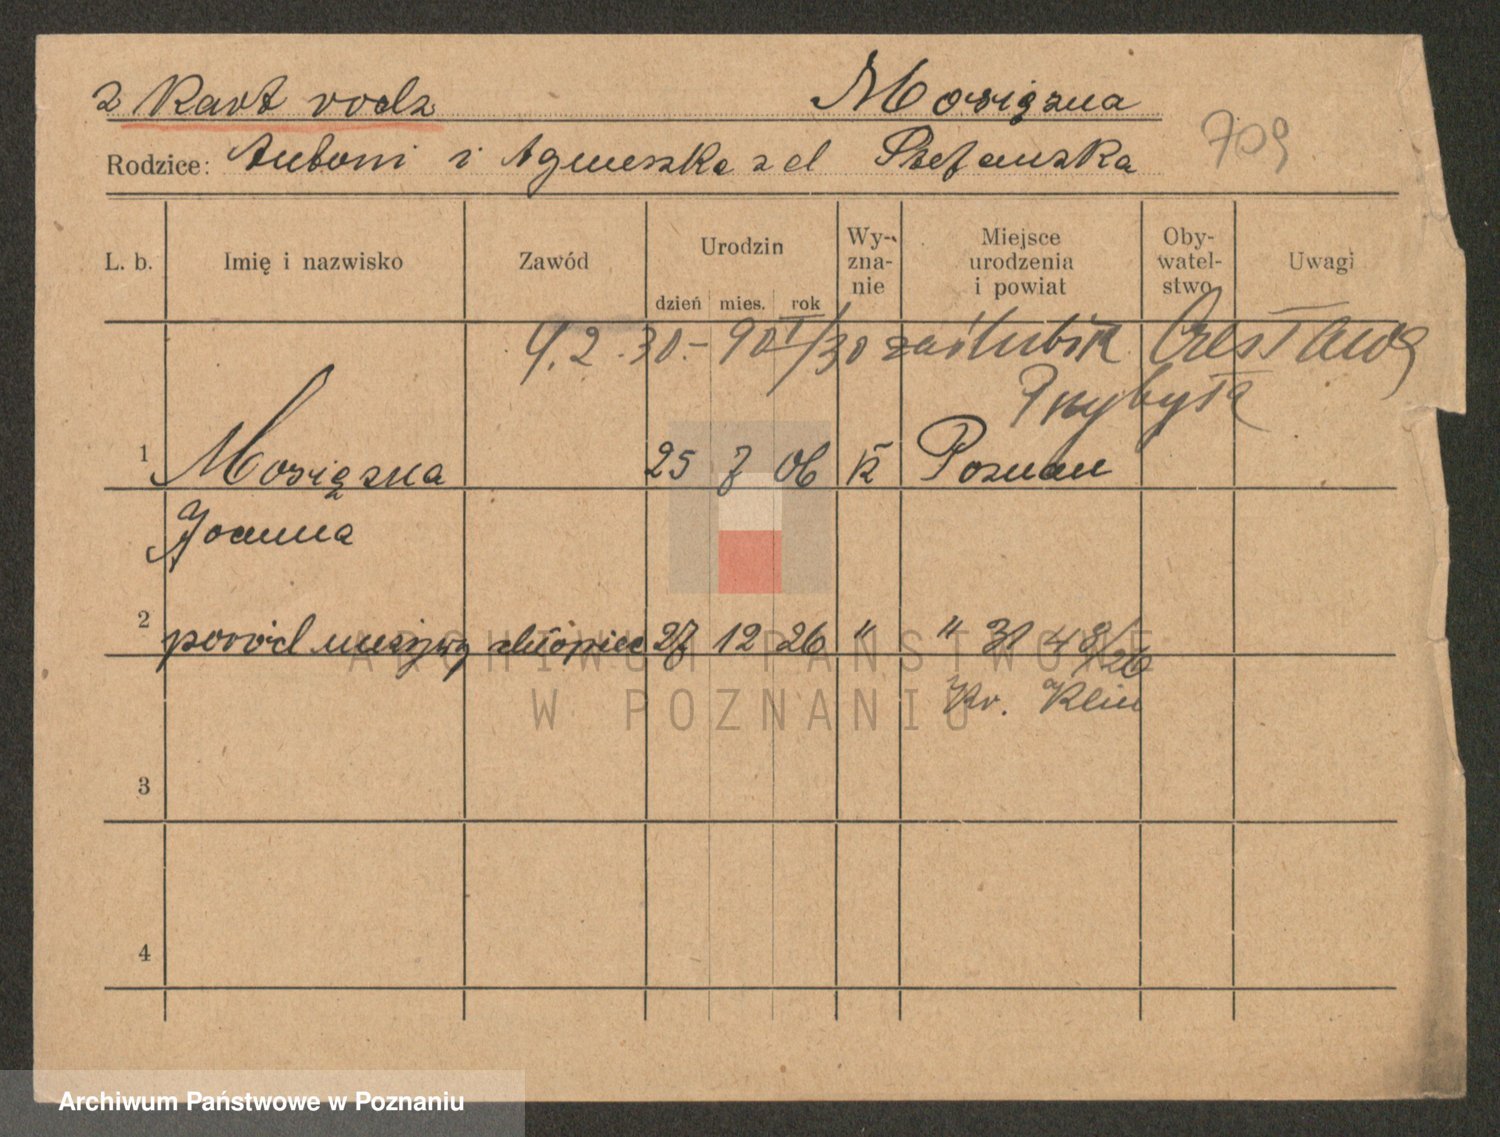 z Kart rodz Mosiężna
709
Rodzice: Antoni i Agnieszka z d Stefańska
L. b. Imię i nazwisko Zawód Urodzin dzień mies. rok Wy-zna-nie Miejsce urodzenia i powiat Oby-watel-stwo Uwagi
4.2.30.- 90 I/30 zaślubiła Czesława
Przybyła
1 Mosiężna 25 7 06 k Poznań
Joanna
2 poród nieżywy chłopiec 27 12 26 " " 31 48/26
Kr. Klin
3
4
ARCHIWUM PAŃSTWOWE
W POZNANIU
Archiwum Państwowe w Poznaniu